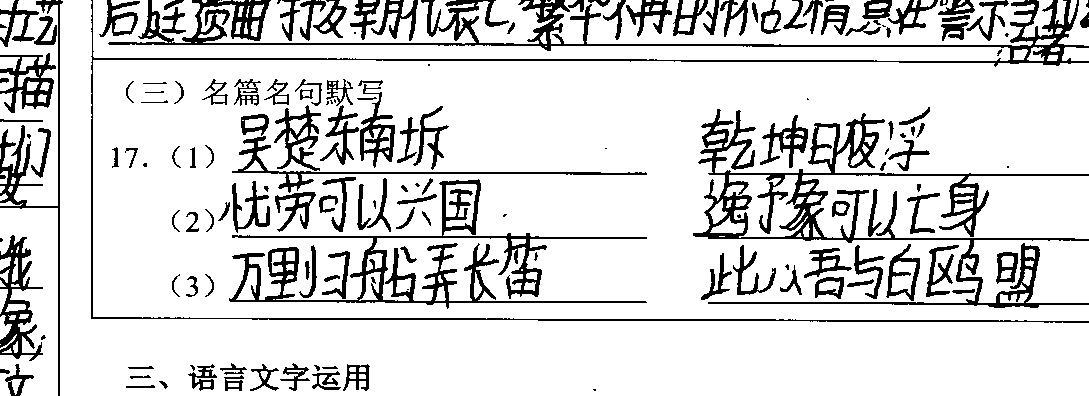 后庭遗曲 抒发朝代衰亡,繁华不再的怀古之情,意在警示当
治者.
(三)名篇名句默写
17.(1)吴楚东南坼 乾坤日夜浮
(2)忧劳可以兴国 逸予象可以亡身
(3)万里归船弄长笛 此以吾与白鸥盟
三、语言文字运用
描
们
象,
文